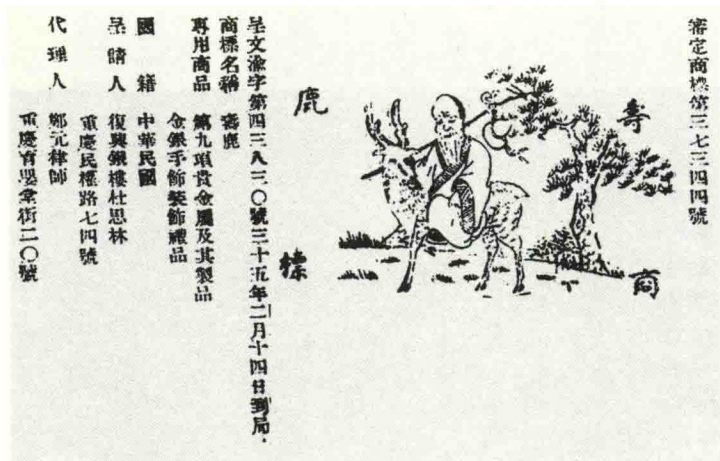 審定商標第三七三四四號
壽鹿
商標
呈文渝字第四三八三〇號三十五年二月十四日到局.
商標名稱 壽鹿
專用商品 第九項貴金屬及其製品
金銀手飾裝飾禮品
國籍 中華民國
呈請人 復興銀樓杜思林
重慶民權路七四號
代理人 鄭元律師
重慶育嬰堂街二〇號